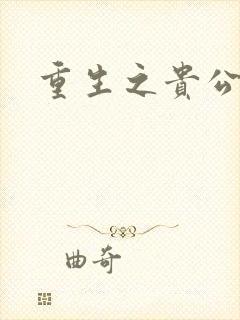 重生之貴公
曲奇